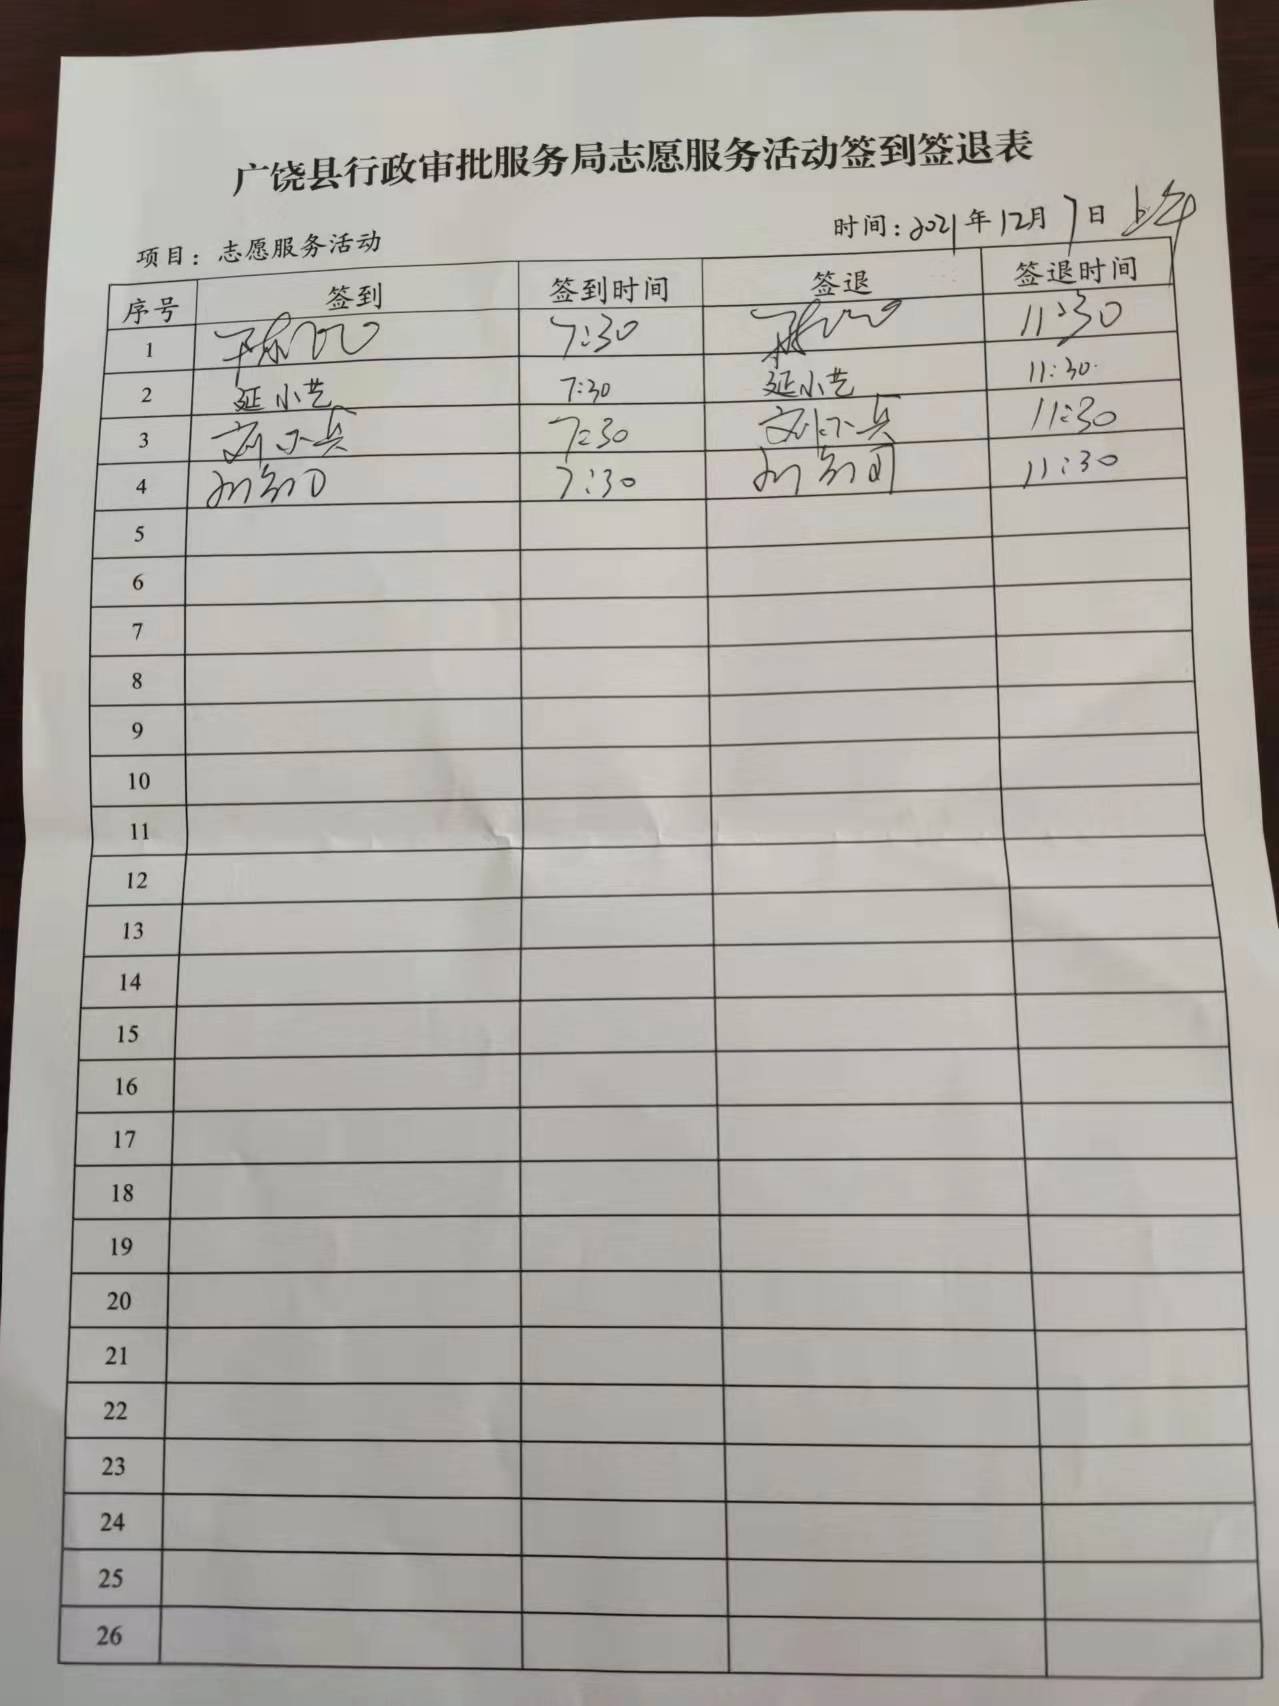 广饶县行政审批服务局志愿服务活动签到签退表
项目：志愿服务活动 时间：2021年12月7日 上午
序号 签到 签到时间 签退 签退时间
1 7:30 11:30
2 延小艺 7:30 延小艺 11:30
3 刘小兵 7:30 刘小兵 11:30
4 7:30 11:30
5
6
7
8
9
10
11
12
13
14
15
16
17
18
19
20
21
22
23
24
25
26